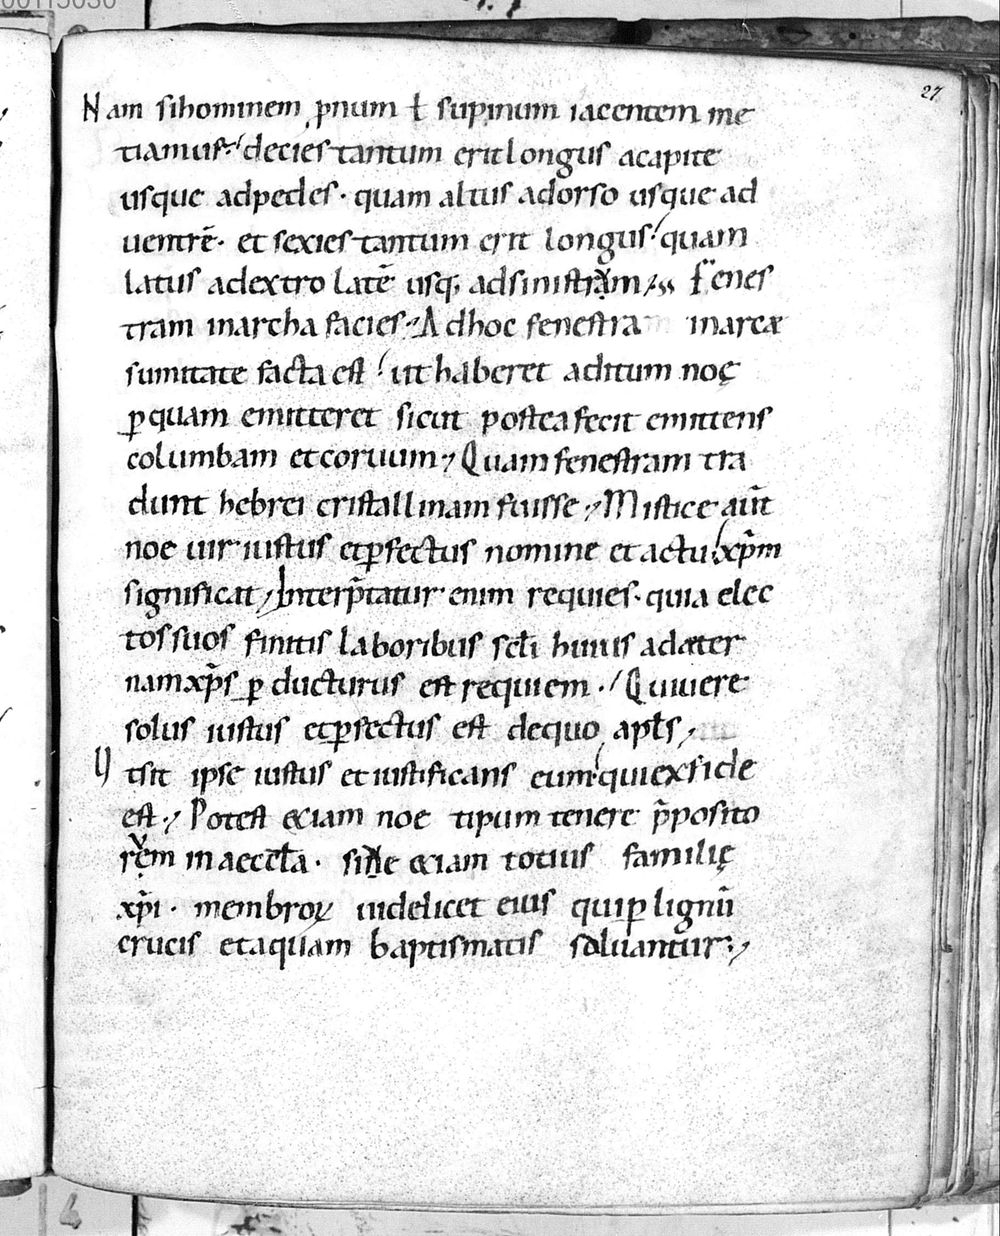 00115030
27
Nam sihominem pnum ł supinum iacentem me
tiamur. decies tantum erit longus acapite
usque adpedes · quam altus adorso usque ad
uentrē · et sexies tantum erit longus. quam
latus adextro latē usq; adsinistram, Fenes
tram inarcha facies. Adhoc fenestra inarcæ
sumitate facta est ut haberet aditum noę
p quam emitteret sicut postea fecit emittens
columbam etcoruum, Quam fenestram tra
dunt hebrei cristallinam fuisse, Mistice aūt
noe uir iustus etpfectus nomine et actu xp̄m
significat, Interp̄tatur enim requies · quia elec
tos suos finitis laboribus scl̄i huius adæter
nam xp̄s p ducturus est requiem . Qui uere
solus iustus etpfectus est dequo apl̄s,
Ut sit ipse iustus et iustificans eum qui exfide
est, Potest eciam noe tipum tenere p̄posito
rem in aeccl̄a · siue eciam totius familię
xp̄i · membroꝝ uidelicet eius qui p lignū
crucis et aquam baptismatis saluantur,